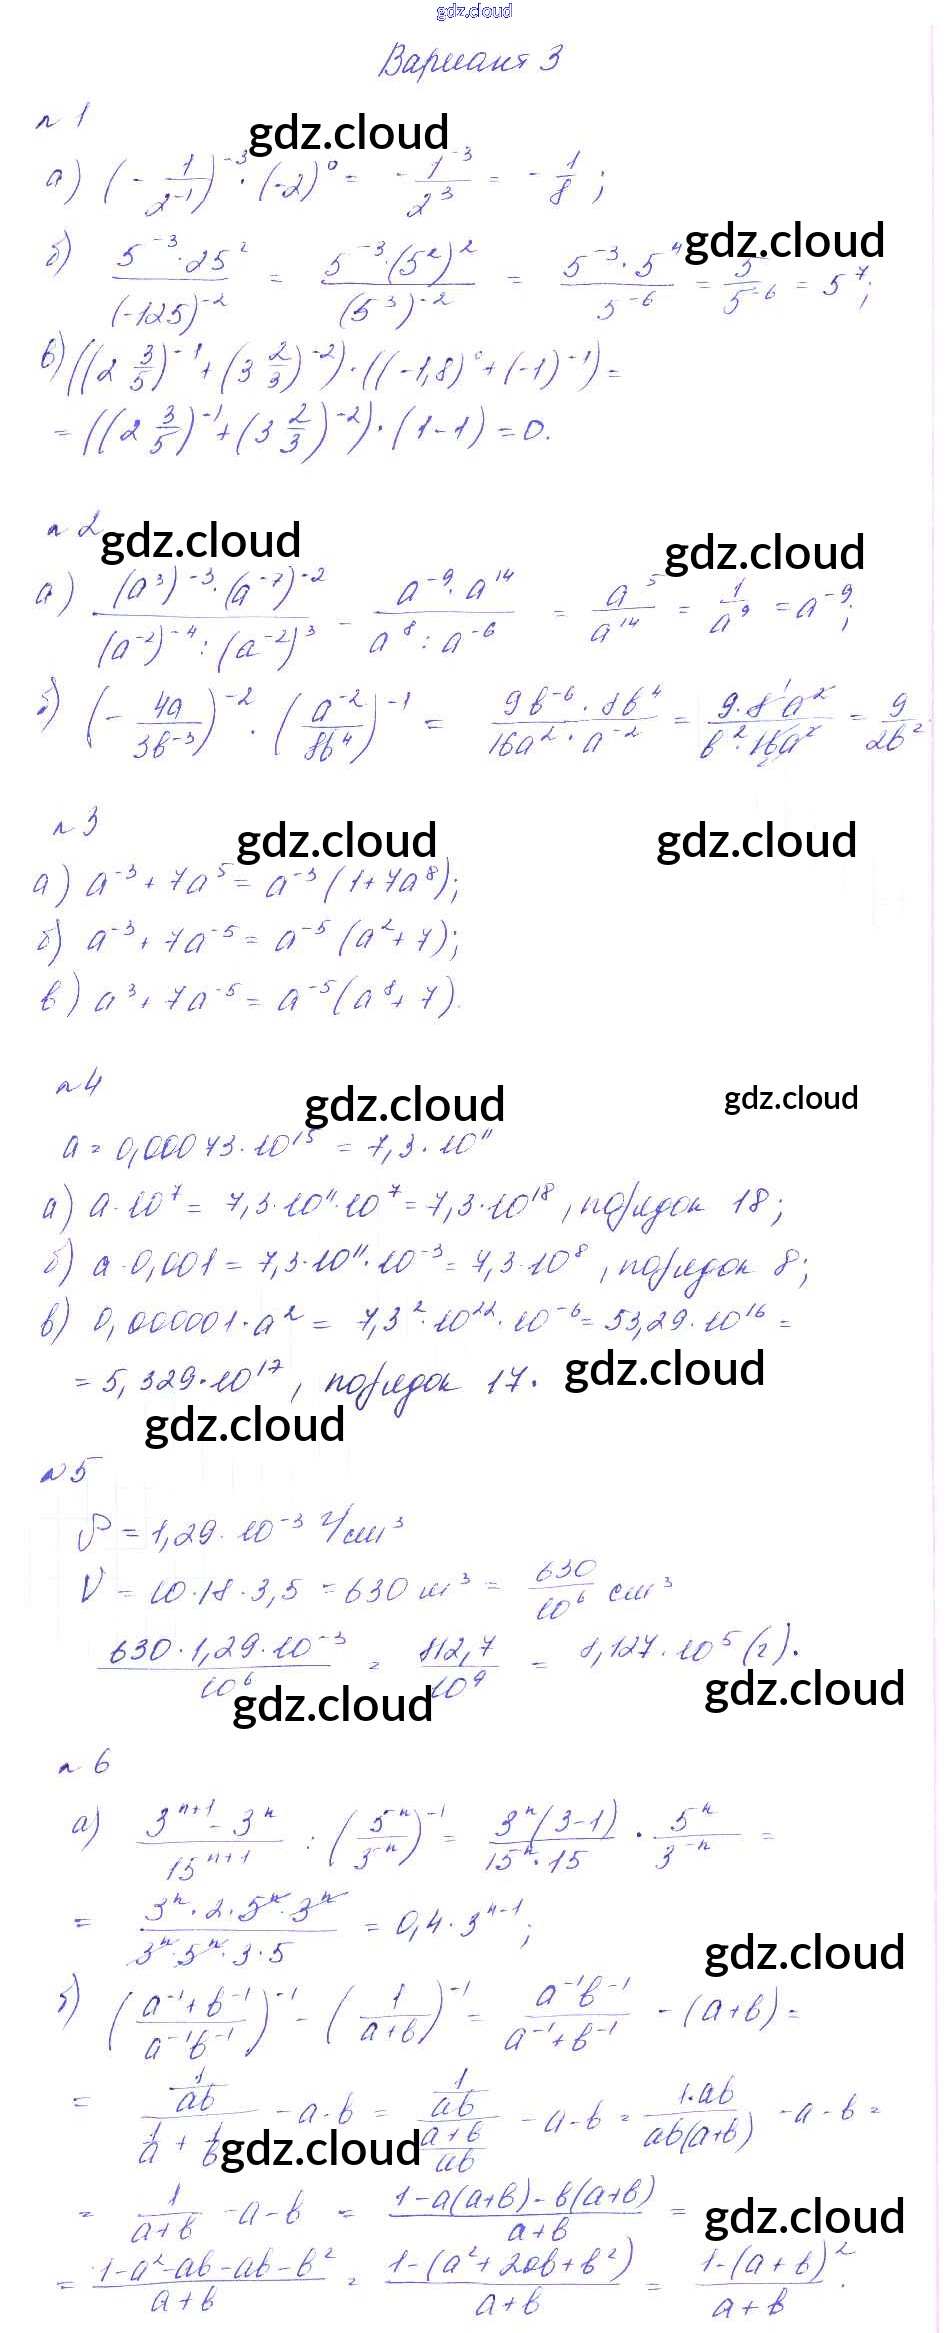 gdz.cloud
Вариант 3
n 1
gdz.cloud
а) (- 1/2⁻¹)⁻³ · (-2)⁰ = - 1⁻³/2³ = - 1/8 ;
gdz.cloud
б) 5⁻³·25²/(-125)⁻² = 5⁻³·(5²)²/(5³)⁻² = 5⁻³·5⁴/5⁻⁶ = 5/5⁻⁶ = 5⁷;
в) ((2 3/5)⁻¹ + (3 2/3)⁻²) · ((-1,8)⁰ + (-1)⁻¹) =
= ((2 3/5)⁻¹ + (3 2/3)⁻²) · (1-1) = 0.
n 2
gdz.cloud
gdz.cloud
а) (a³)⁻³·(a⁻⁷)⁻²/(a⁻²)⁻⁴:(a⁻²)³ - a⁻⁹·a¹⁴/a⁸:a⁻⁶ = a⁵/a¹⁴ = 1/a⁹ = a⁻⁹;
б) (- 4a/3b⁻³)⁻² · (a⁻²/8b⁴)⁻¹ = 9b⁻⁶·8b⁴/16a²·a⁻² = 9·8¹a²/b²·16a² = 9/2b²
n 3
gdz.cloud
gdz.cloud
а) a⁻³ + 7a⁵ = a⁻³(1+7a⁸);
б) a⁻³ + 7a⁻⁵ = a⁻⁵(a²+7);
в) a³ + 7a⁻⁵ = a⁻⁵(a⁸+7).
n 4
gdz.cloud
gdz.cloud
a = 0,00073·10¹⁵ = 7,3·10¹¹
а) a·10⁷ = 7,3·10¹¹·10⁷ = 7,3·10¹⁸, порядок 18;
б) a·0,001 = 7,3·10¹¹·10⁻³ = 7,3·10⁸, порядок 8;
в) 0,000001·a² = 7,3²·10²²·10⁻⁶ = 53,29·10¹⁶ =
= 5,329·10¹⁷, порядок 17.
gdz.cloud
gdz.cloud
n 5
ρ = 1,29·10⁻³ г/см³
V = 10·18·3,5 = 630 м³ = 630/10⁶ см³
630·1,29·10⁻³/10⁶ = 812,7/10⁹ = 8,127·10⁵ (г).
gdz.cloud
gdz.cloud
n 6
а) 3ⁿ⁺¹-3ⁿ/15ⁿ⁺¹ : (5ⁿ/3⁻ⁿ)⁻¹ = 3ⁿ(3-1)/15ⁿ·15 · 5ⁿ/3⁻ⁿ =
= 3ⁿ·2·5ⁿ·3ⁿ/3ⁿ·5ⁿ·3·5 = 0,4·3ⁿ⁻¹;
gdz.cloud
б) (a⁻¹+b⁻¹/a⁻¹b⁻¹)⁻¹ - (1/a+b)⁻¹ = a⁻¹b⁻¹/a⁻¹+b⁻¹ - (a+b) =
= 1/ab / 1/a + 1/b - a-b = 1/ab / a+b/ab - a-b = 1·ab/ab(a+b) - a-b =
gdz.cloud
= 1/a+b - a-b = 1-a(a+b)-b(a+b)/a+b =
gdz.cloud
= 1-a²-ab-ab-b²/a+b = 1-(a²+2ab+b²)/a+b = 1-(a+b)²/a+b.